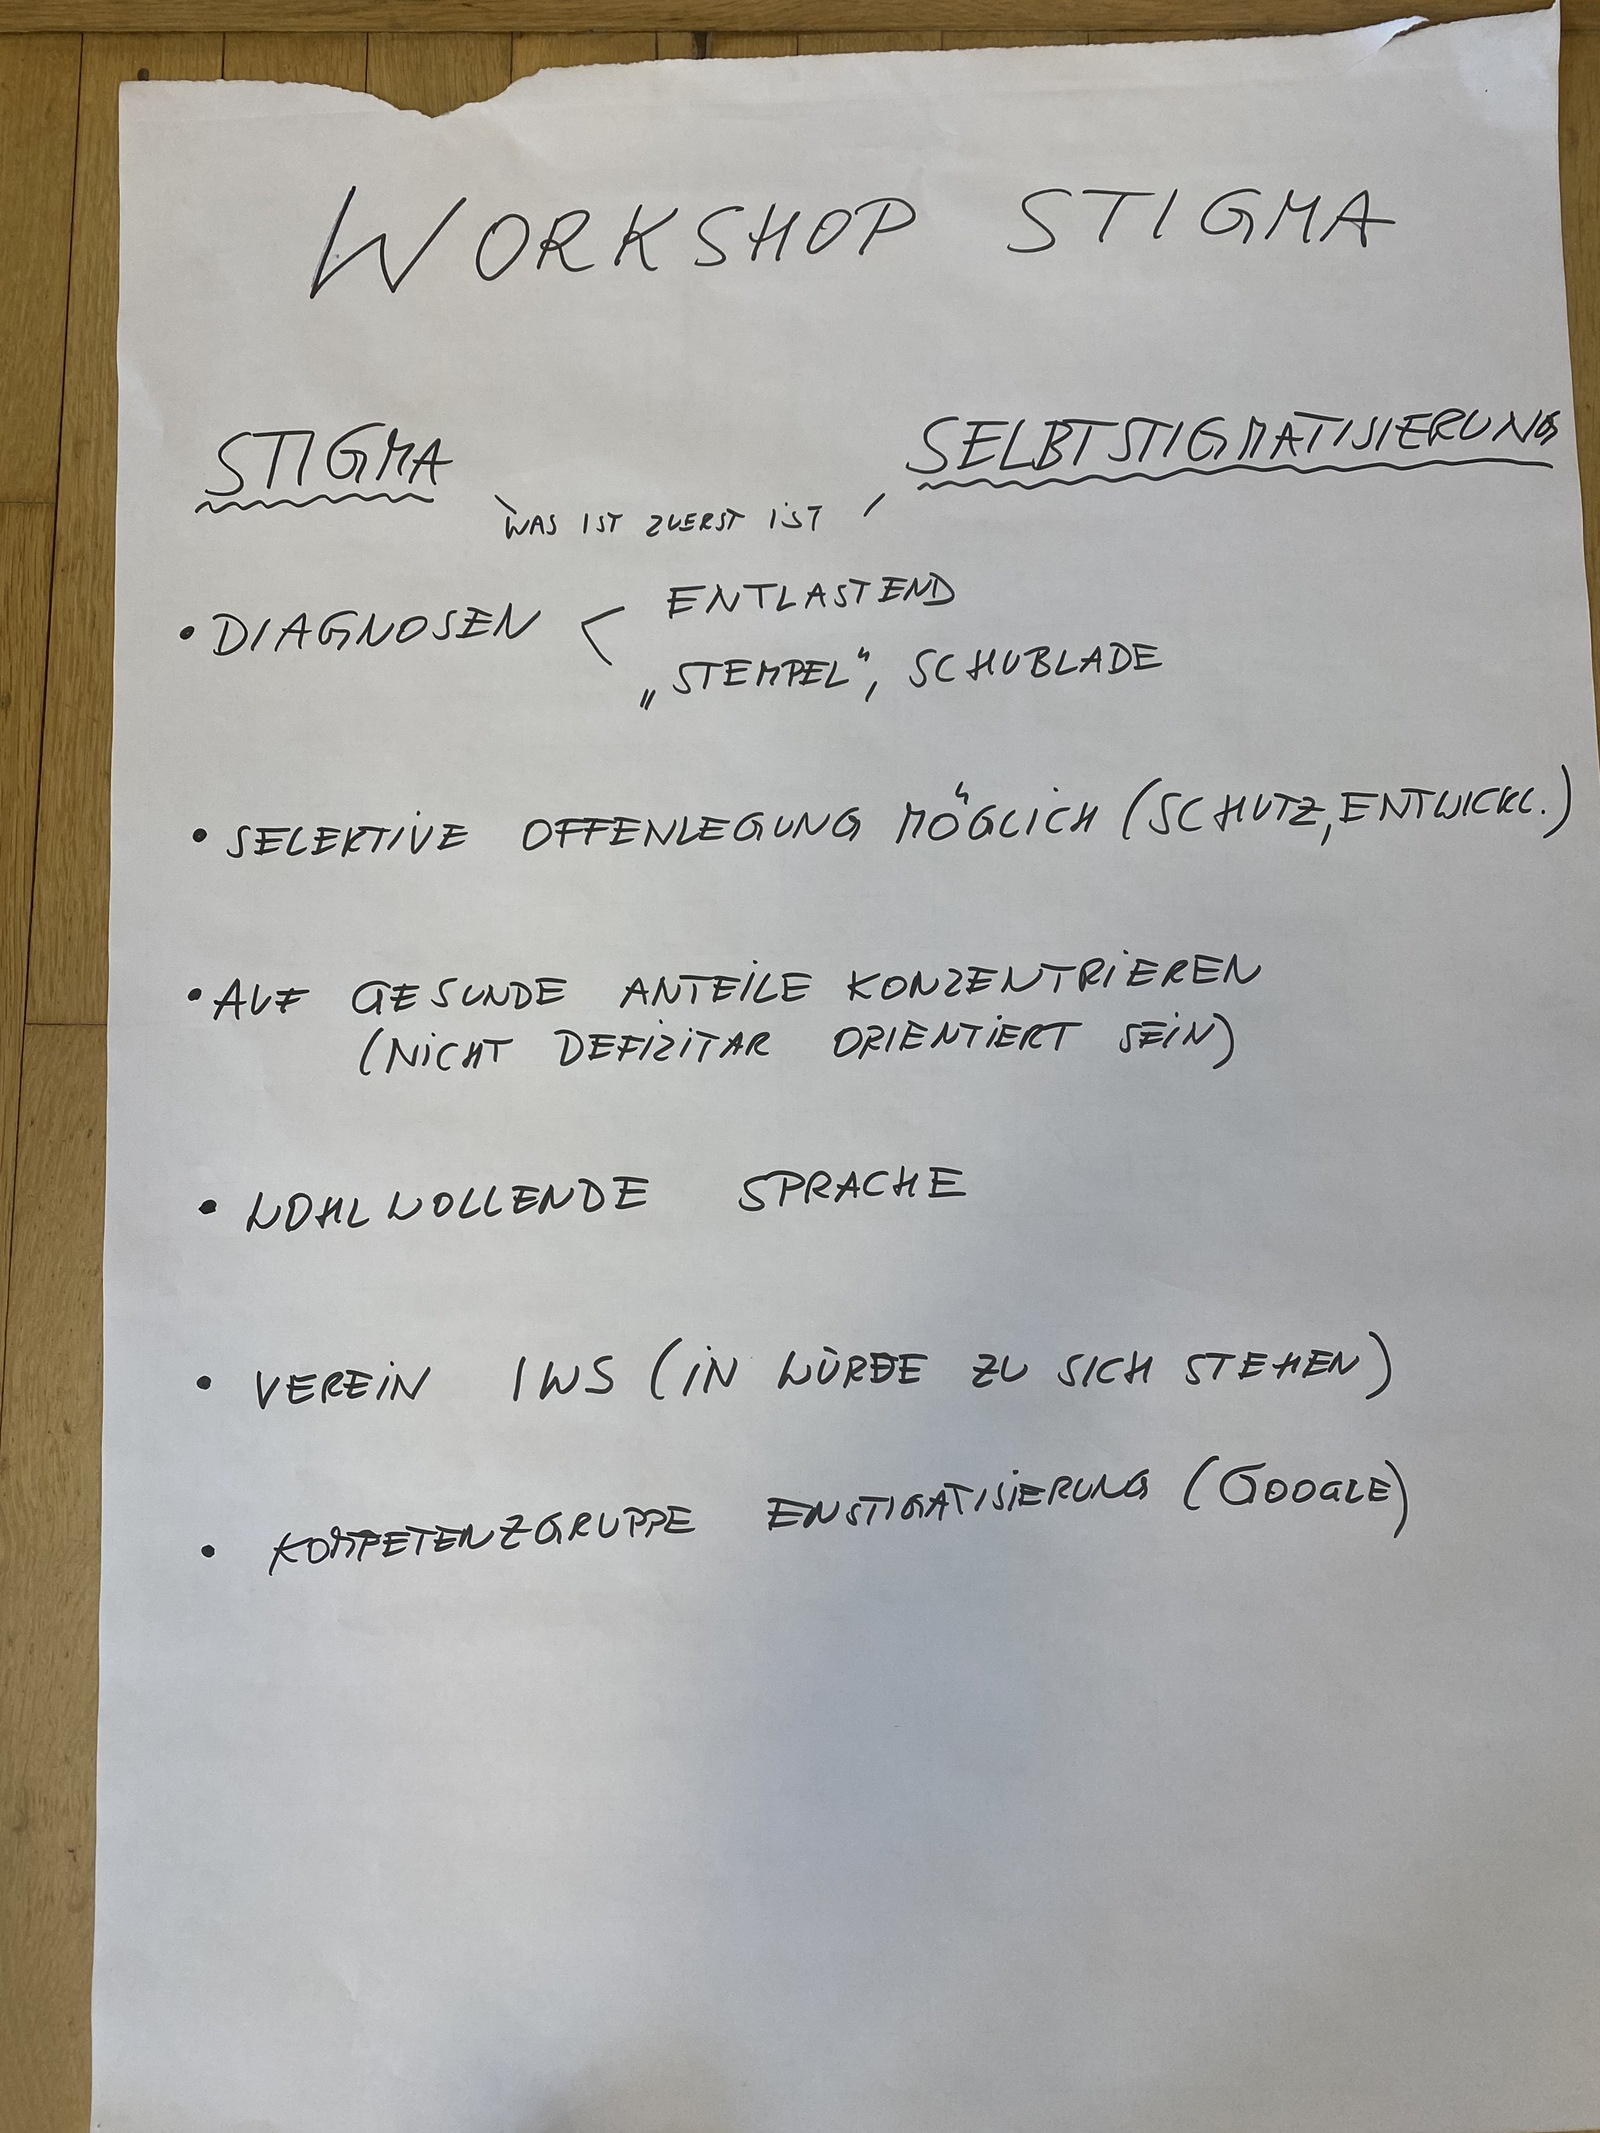 WORKSHOP STIGMA
STIGMA SELBTSTIGMATISIERUNG
WAS IST ZUERST IST
• DIAGNOSEN < ENTLASTEND
„STEMPEL“, SCHUBLADE
• SELEKTIVE OFFENLEGUNG MÖGLICH (SCHUTZ, ENTWICKL.)
• AUF GESUNDE ANTEILE KONZENTRIEREN
(NICHT DEFIZITAR ORIENTIERT SEIN)
• WOHLWOLLENDE SPRACHE
• VEREIN IWS (IN WÜRDE ZU SICH STEHEN)
• KOMPETENZGRUPPE ENSTIGATISIERUNG (GOOGLE)